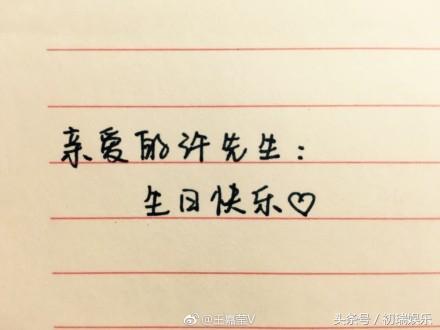 亲爱的许先生：
生日快乐♡
@王嘉萱V
头条号 / 初瑞娱乐